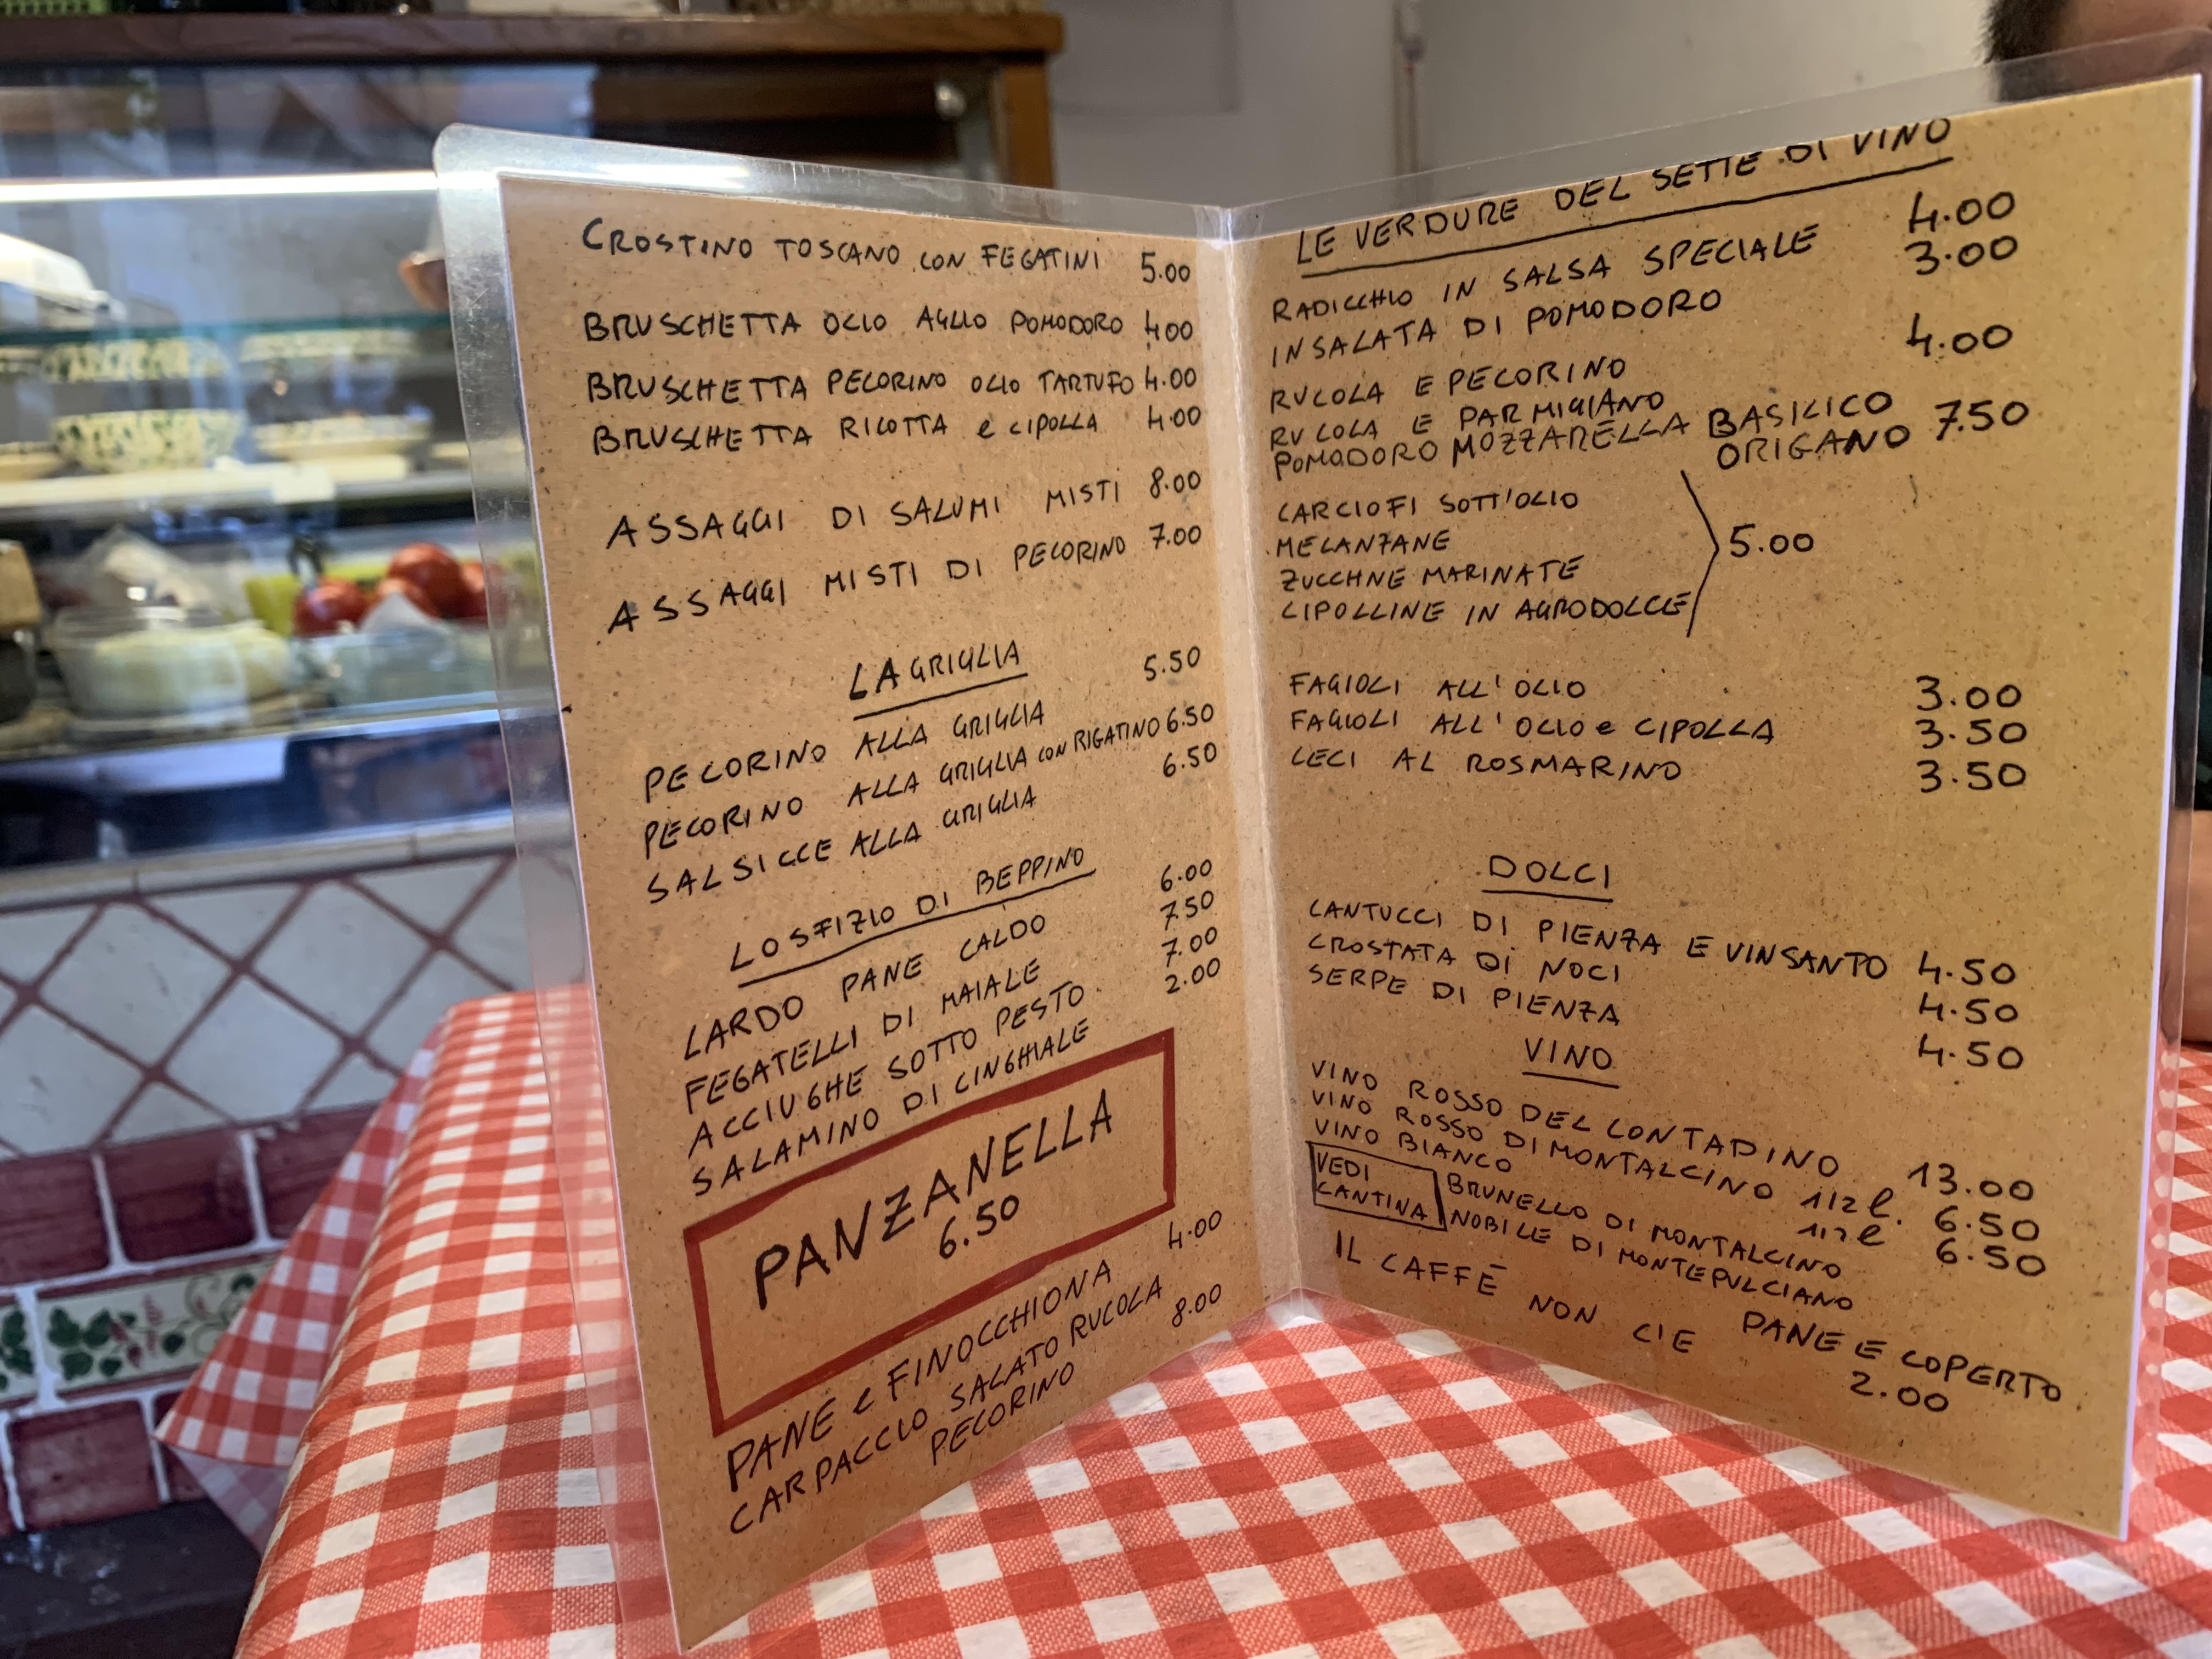 CROSTINO TOSCANO CON FEGATINI 5.00
BRUSCHETTA OLIO AGLIO POMODORO 4.00
BRUSCHETTA PECORINO OLIO TARTUFO 4.00
BRUSCHETTA RICOTTA e CIPOLLA 4.00
ASSAGGI DI SALUMI MISTI 8.00
ASSAGGI MISTI DI PECORINO 7.00
LA GRIGLIA
PECORINO ALLA GRIGLIA 5.50
PECORINO ALLA GRIGLIA CON RIGATINO 6.50
SALSICCE ALLA GRIGLIA 6.50
LO SFIZIO DI BEPPINO
LARDO PANE CALDO 6.00
FEGATELLI DI MAIALE 7.50
ACCIUGHE SOTTO PESTO 7.00
SALAMINO DI CINGHIALE 2.00
PANZANELLA
6.50
PANE e FINOCCHIONA 4.00
CARPACCIO SALATO RUCOLA
PECORINO 8.00
LE VERDURE DEL SETTE DI VINO
RADICCHIO IN SALSA SPECIALE 4.00
INSALATA DI POMODORO 3.00
RUCOLA E PECORINO 4.00
RUCOLA E PARMIGIANO
POMODORO MOZZARELLA BASILICO
ORIGANO 7.50
CARCIOFI SOTT'OLIO
MELANZANE 5.00
ZUCCHNE MARINATE
CIPOLLINE IN AGRODOLCE
FAGIOLI ALL'OLIO 3.00
FAGIOLI ALL'OLIO e CIPOLLA 3.50
CECI AL ROSMARINO 3.50
DOLCI
CANTUCCI DI PIENZA E VINSANTO 4.50
CROSTATA DI NOCI 4.50
SERPE DI PIENZA 4.50
VINO
VINO ROSSO DEL CONTADINO 13.00
VINO ROSSO DI MONTALCINO 1/2 l. 6.50
VINO BIANCO 1/2 l 6.50
VEDI
CANTINA
BRUNELLO DI MONTALCINO
NOBILE DI MONTEPULCIANO
IL CAFFÈ NON C'E
PANE E COPERTO
2.00